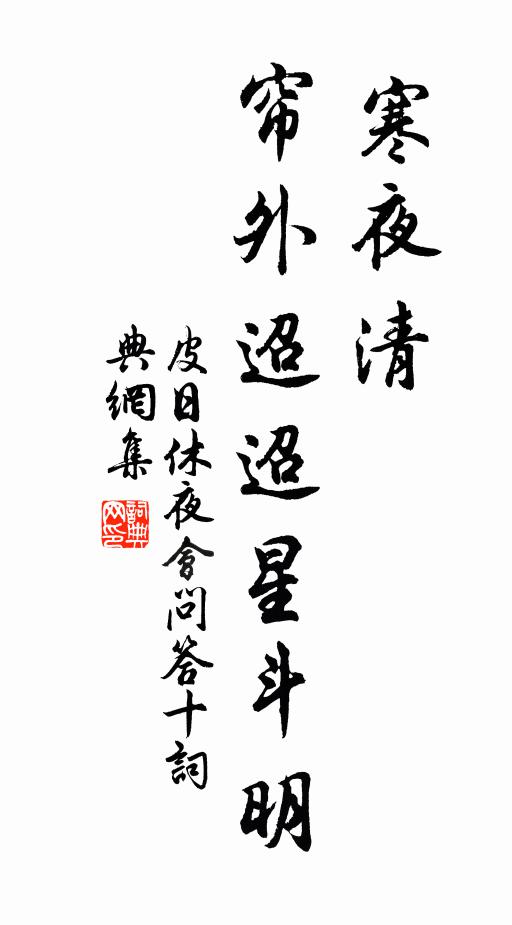 寒夜清
帘外迢迢星斗明
皮日休夜會問答十詞
典網集
詞典网印